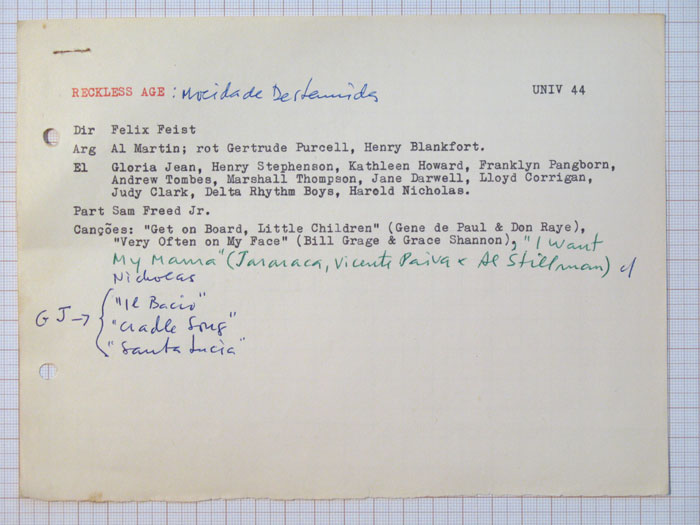 RECKLESS AGE : Mocidade Destemida UNIV 44
Dir Felix Feist
Arg Al Martin; rot Gertrude Purcell, Henry Blankfort.
El Gloria Jean, Henry Stephenson, Kathleen Howard, Franklyn Pangborn,
Andrew Tombes, Marshall Thompson, Jane Darwell, Lloyd Corrigan,
Judy Clark, Delta Rhythm Boys, Harold Nicholas.
Part Sam Freed Jr.
Canções: "Get on Board, Little Children" (Gene de Paul & Don Raye),
"Very Often on My Face" (Bill Grage & Grace Shannon), "I Want
My Mama" (Jararaca, Vicente Paiva & Al Stillman) c/
Nicholas
GJ → { "Il Bacio"
"Cradle Song"
"Santa Lucia"